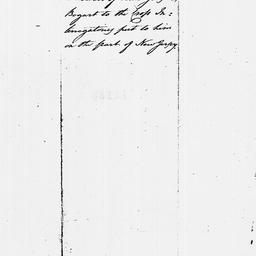 Bogart to the Cross In=
terogatories put to him
on the part of New Jersey